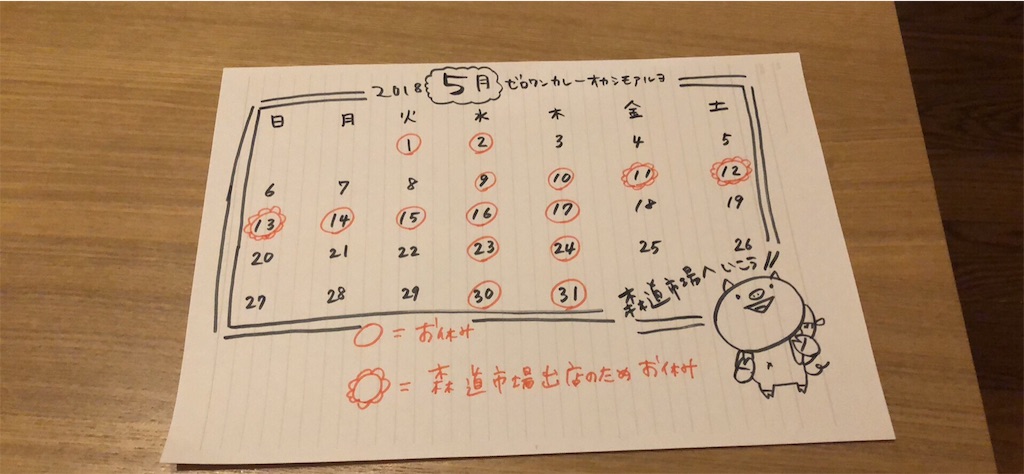 2018 5月 ゼロワンカレーオカシモアルヨ
日 月 火 水 木 金 土
1 2 3 4 5
6 7 8 9 10 11 12
13 14 15 16 17 18 19
20 21 22 23 24 25 26
27 28 29 30 31
森道市場へいこう!!
= お休み
= 森道市場出店のためお休み